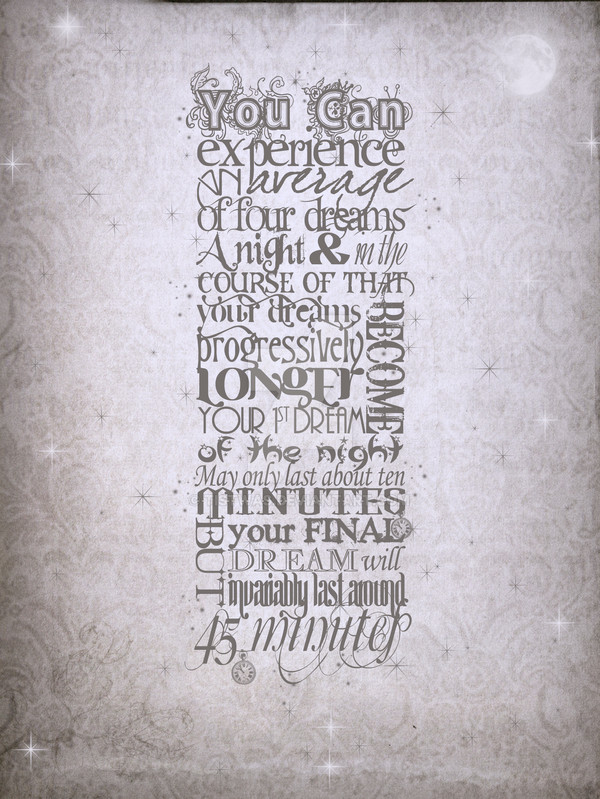 You Can
experience
AN average
of four dreams
A night & in the
COURSE OF THAT
your dreams
BECOME
progressively
LONGER
YOUR 1ST DREAM
of the night
May only last about ten
MINUTES
BUT
your FINAL
DREAM will
invariably last around
45 minutes